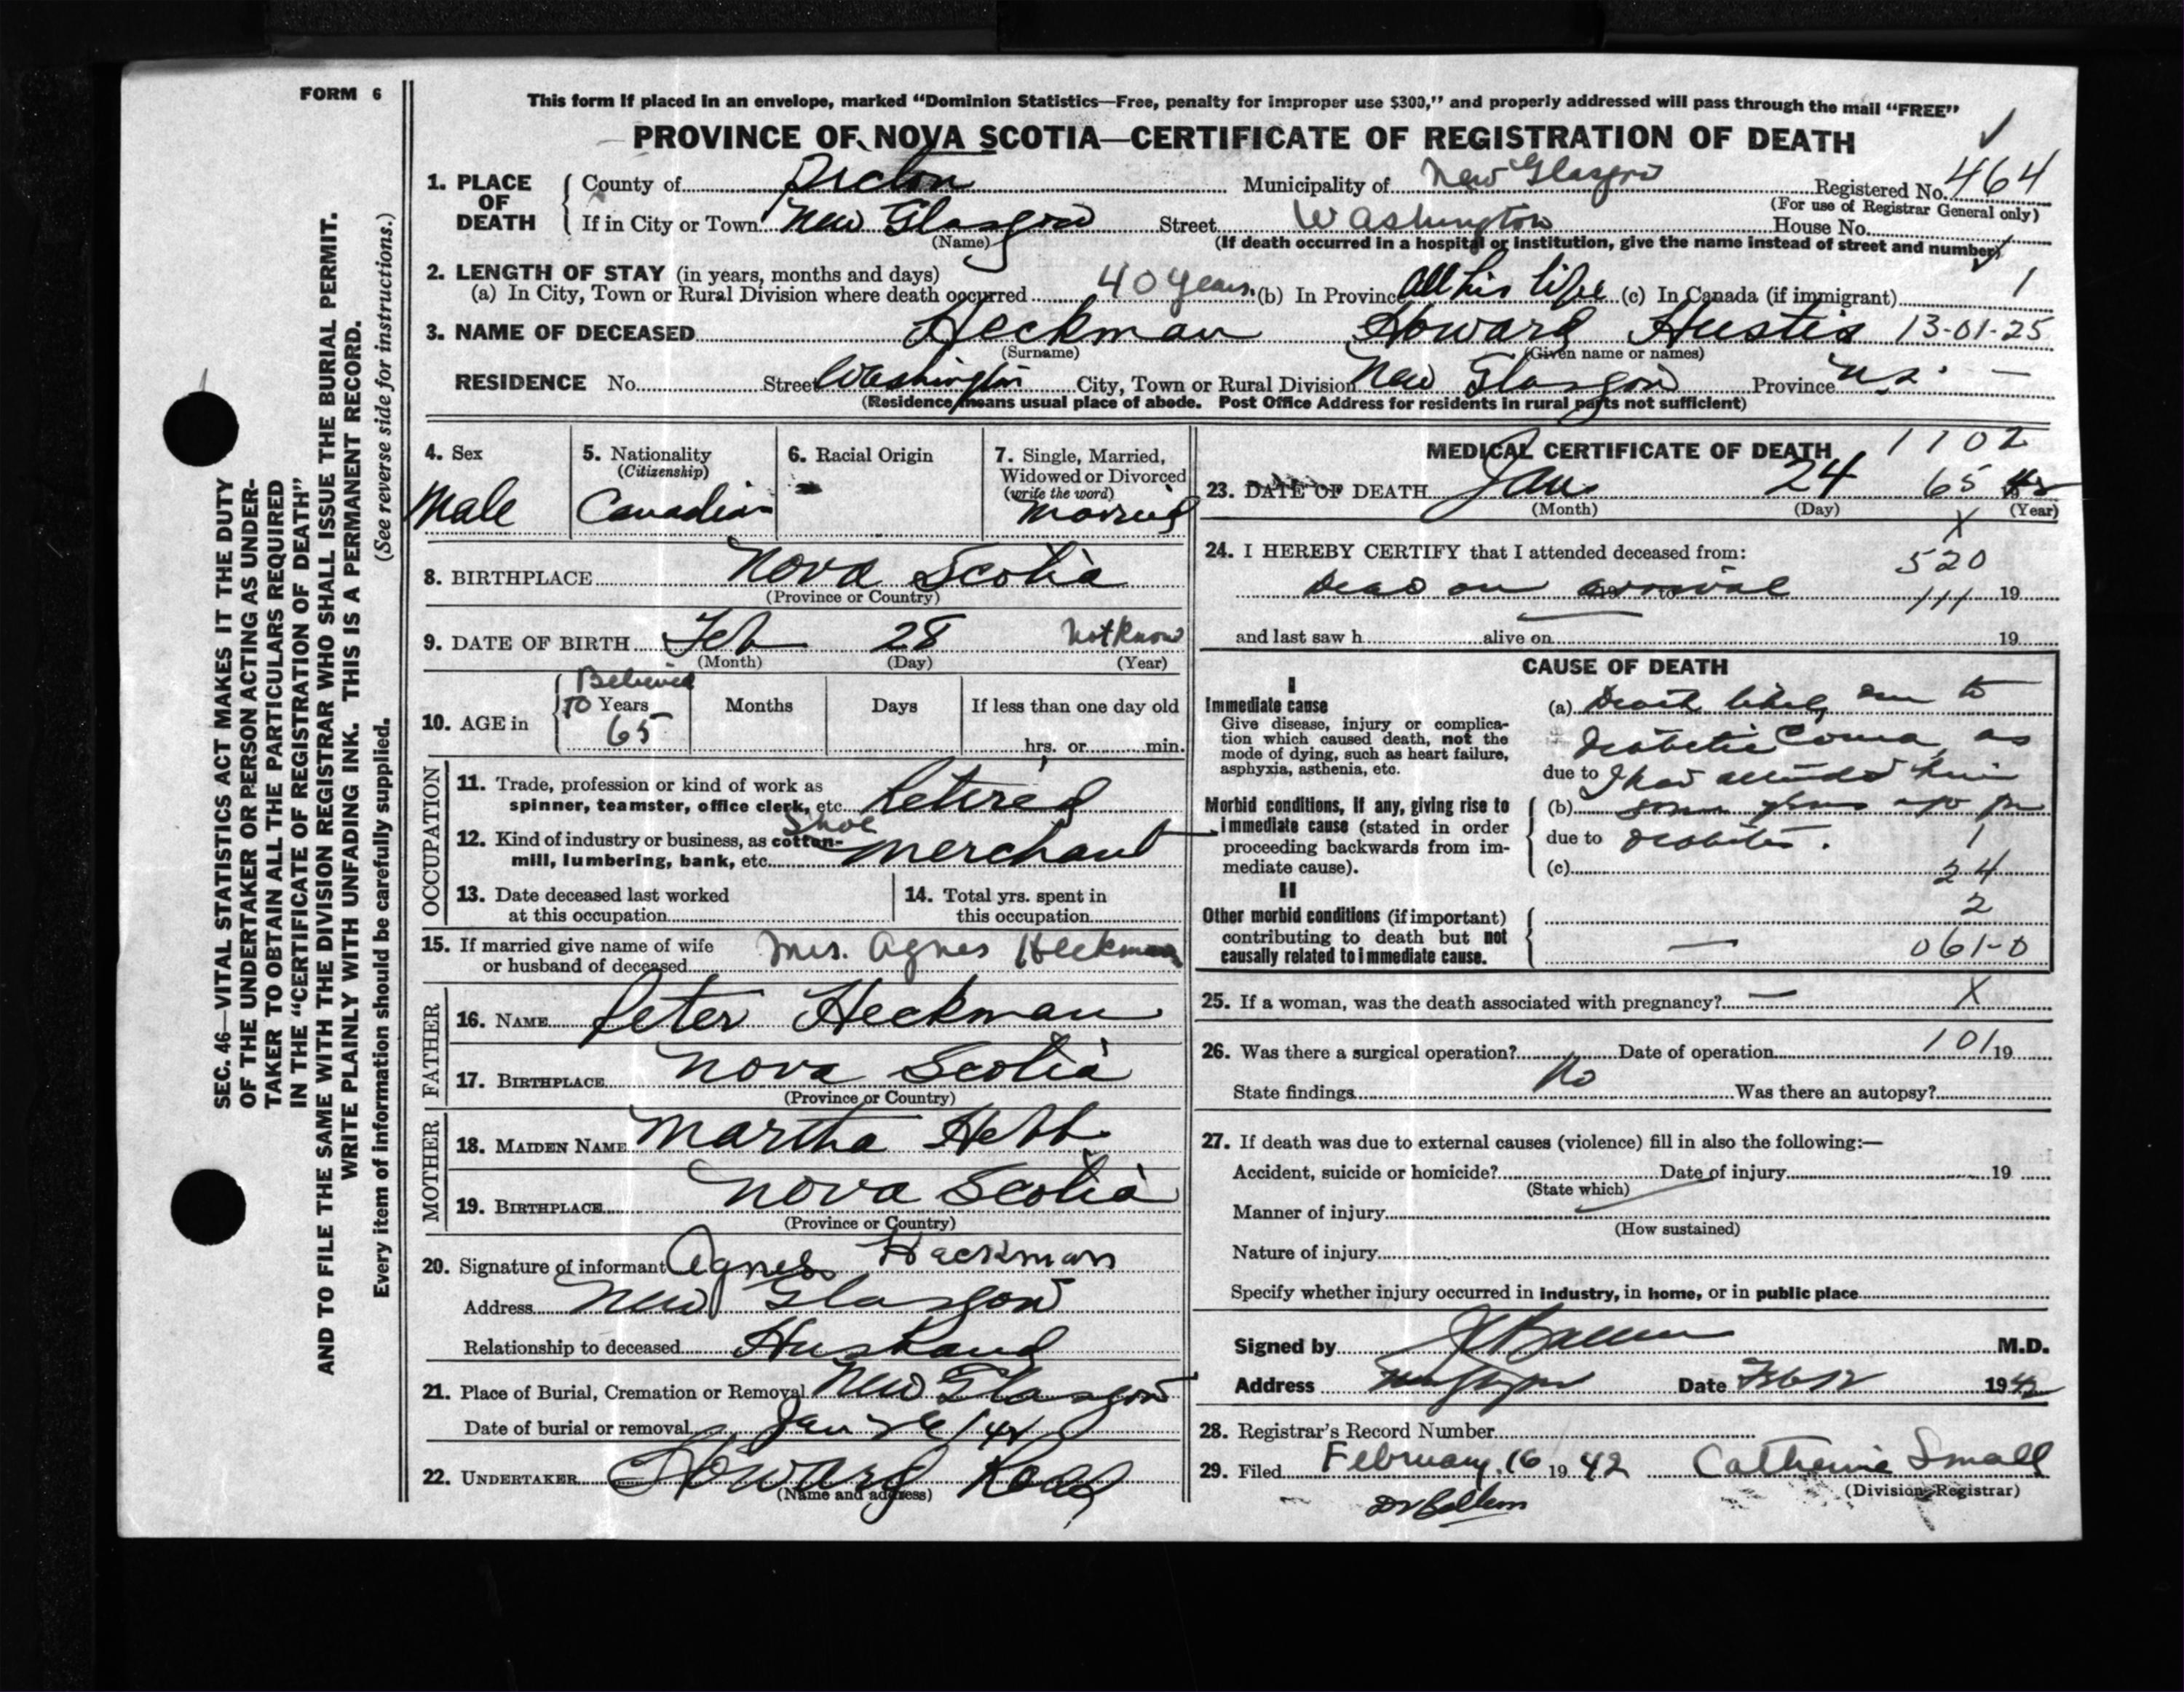 FORM 6
This form if placed in an envelope, marked “Dominion Statistics—Free, penalty for improper use $300,” and properly addressed will pass through the mail “FREE”
PROVINCE OF NOVA SCOTIA—CERTIFICATE OF REGISTRATION OF DEATH
1. PLACE OF DEATH { County of Pictou Municipality of New Glasgow Registered No. 464
(For use of Registrar General only)
If in City or Town New Glasgow Street Washington House No.
(Name) (If death occurred in a hospital or institution, give the name instead of street and number)
2. LENGTH OF STAY (in years, months and days)
(a) In City, Town or Rural Division where death occurred 40 years. (b) In Province All his life (c) In Canada (if immigrant) 1
3. NAME OF DECEASED Heckman Howard Hustis 13-01-25
(Surname) (Given name or names)
RESIDENCE No. Street Washington City, Town or Rural Division New Glasgow Province N.S. —
(Residence means usual place of abode. Post Office Address for residents in rural parts not sufficient)
4. Sex
Male
5. Nationality
(Citizenship)
Canadian
6. Racial Origin
7. Single, Married,
Widowed or Divorced
(write the word)
Married
8. BIRTHPLACE Nova Scotia
(Province or Country)
9. DATE OF BIRTH Feb 28 Not Know
(Month) (Day) (Year)
10. AGE in { Believed
To Years Months Days If less than one day old
65 hrs. or min.
OCCUPATION
11. Trade, profession or kind of work as
spinner, teamster, office clerk, etc. Retired
12. Kind of industry or business, as cotton-
mill, lumbering, bank, etc. Shoe Merchant
13. Date deceased last worked
at this occupation
14. Total yrs. spent in
this occupation
15. If married give name of wife
or husband of deceased Mrs. Agnes Heckman
FATHER
16. NAME Peter Heckman
17. BIRTHPLACE Nova Scotia
(Province or Country)
MOTHER
18. MAIDEN NAME Martha Hebb
19. BIRTHPLACE Nova Scotia
(Province or Country)
20. Signature of informant Agness Heckman
Address New Glasgow
Relationship to deceased Husband
21. Place of Burial, Cremation or Removal New Glasgow
Date of burial or removal Jan 26/42
22. UNDERTAKER Howard
(Name and address)
MEDICAL CERTIFICATE OF DEATH 1102
23. DATE OF DEATH Jan 24 65 42
(Month) (Day) (Year)
X
24. I HEREBY CERTIFY that I attended deceased from: 520
Dead on arrival 111 19
and last saw h alive on 19
CAUSE OF DEATH
I
Immediate cause
Give disease, injury or complica-
tion which caused death, not the
mode of dying, such as heart failure,
asphyxia, asthenia, etc.
(a) Death likely due to
Diabetic Coma, as
due to I had attended him
Morbid conditions, if any, giving rise to
immediate cause (stated in order
proceeding backwards from im-
mediate cause).
(b) some years ago for
due to diabetes. 1
(c) 24
II
Other morbid conditions (if important)
contributing to death but not
causally related to immediate cause.
2
— 061-0
25. If a woman, was the death associated with pregnancy? — X
26. Was there a surgical operation? No Date of operation 101 19
State findings Was there an autopsy?
27. If death was due to external causes (violence) fill in also the following:—
Accident, suicide or homicide? Date of injury 19
(State which)
Manner of injury
(How sustained)
Nature of injury
Specify whether injury occurred in industry, in home, or in public place
Signed by M.D.
Address New Glasgow Date Feb 12 1942
28. Registrar's Record Number
29. Filed February 16 19 42 Catherine Small
(Division Registrar)
Dr Ballem
SEC. 46—VITAL STATISTICS ACT MAKES IT THE DUTY
OF THE UNDERTAKER OR PERSON ACTING AS UNDER-
TAKER TO OBTAIN ALL THE PARTICULARS REQUIRED
IN THE “CERTIFICATE OF REGISTRATION OF DEATH”
AND TO FILE THE SAME WITH THE DIVISION REGISTRAR WHO SHALL ISSUE THE BURIAL PERMIT.
WRITE PLAINLY WITH UNFADING INK. THIS IS A PERMANENT RECORD.
Every item of information should be carefully supplied. (See reverse side for instructions.)